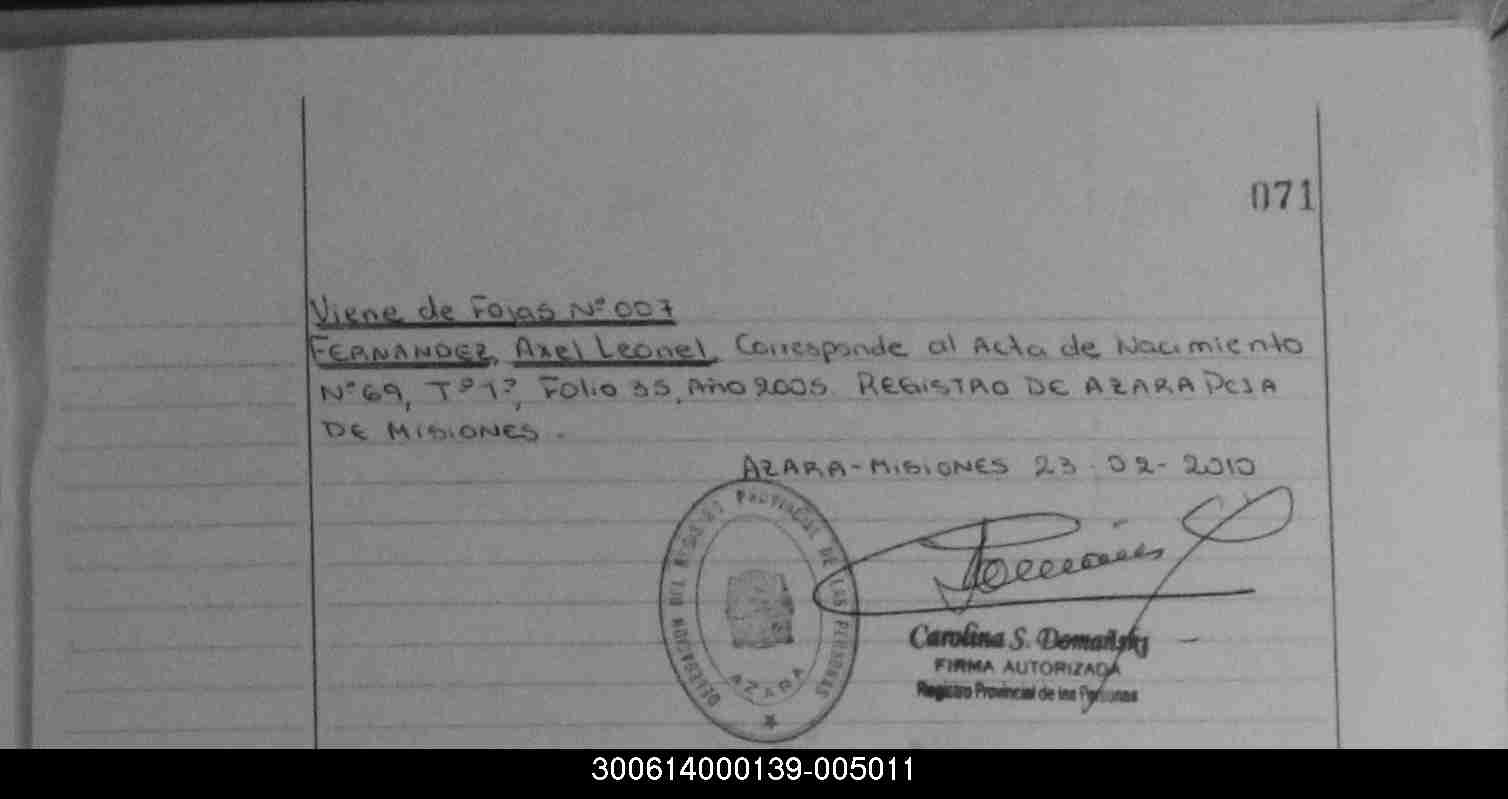 071
Viene de Fojas Nº 007
FERNANDEZ, Axel Leonel, Corresponde al Acta de Nacimiento
Nº 69, Tº 1º, Folio 35, Año 2005. REGISTRO DE AZARA PCIA
DE MISIONES.
AZARA-MISIONES 23-02-2010
DELEGACION DEL REGISTRO PROVINCIAL DE LAS PERSONAS
AZARA
Carolina S. Domañski
FIRMA AUTORIZADA
Registro Provincial de las Personas
300614000139-005011